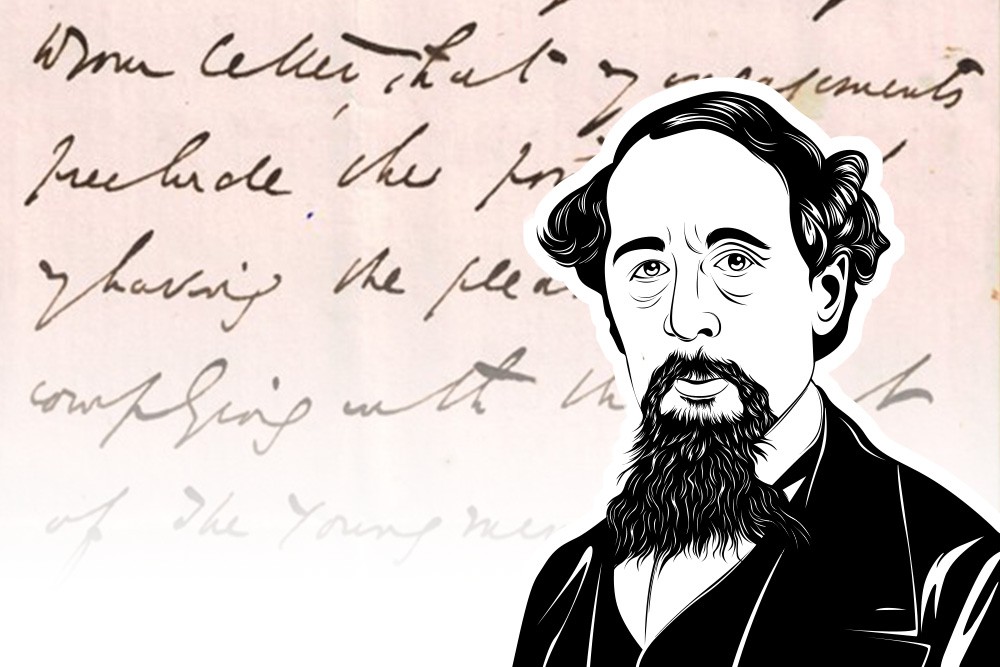 letter, that my engagements
preclude the
of having the
complying with
of the Young